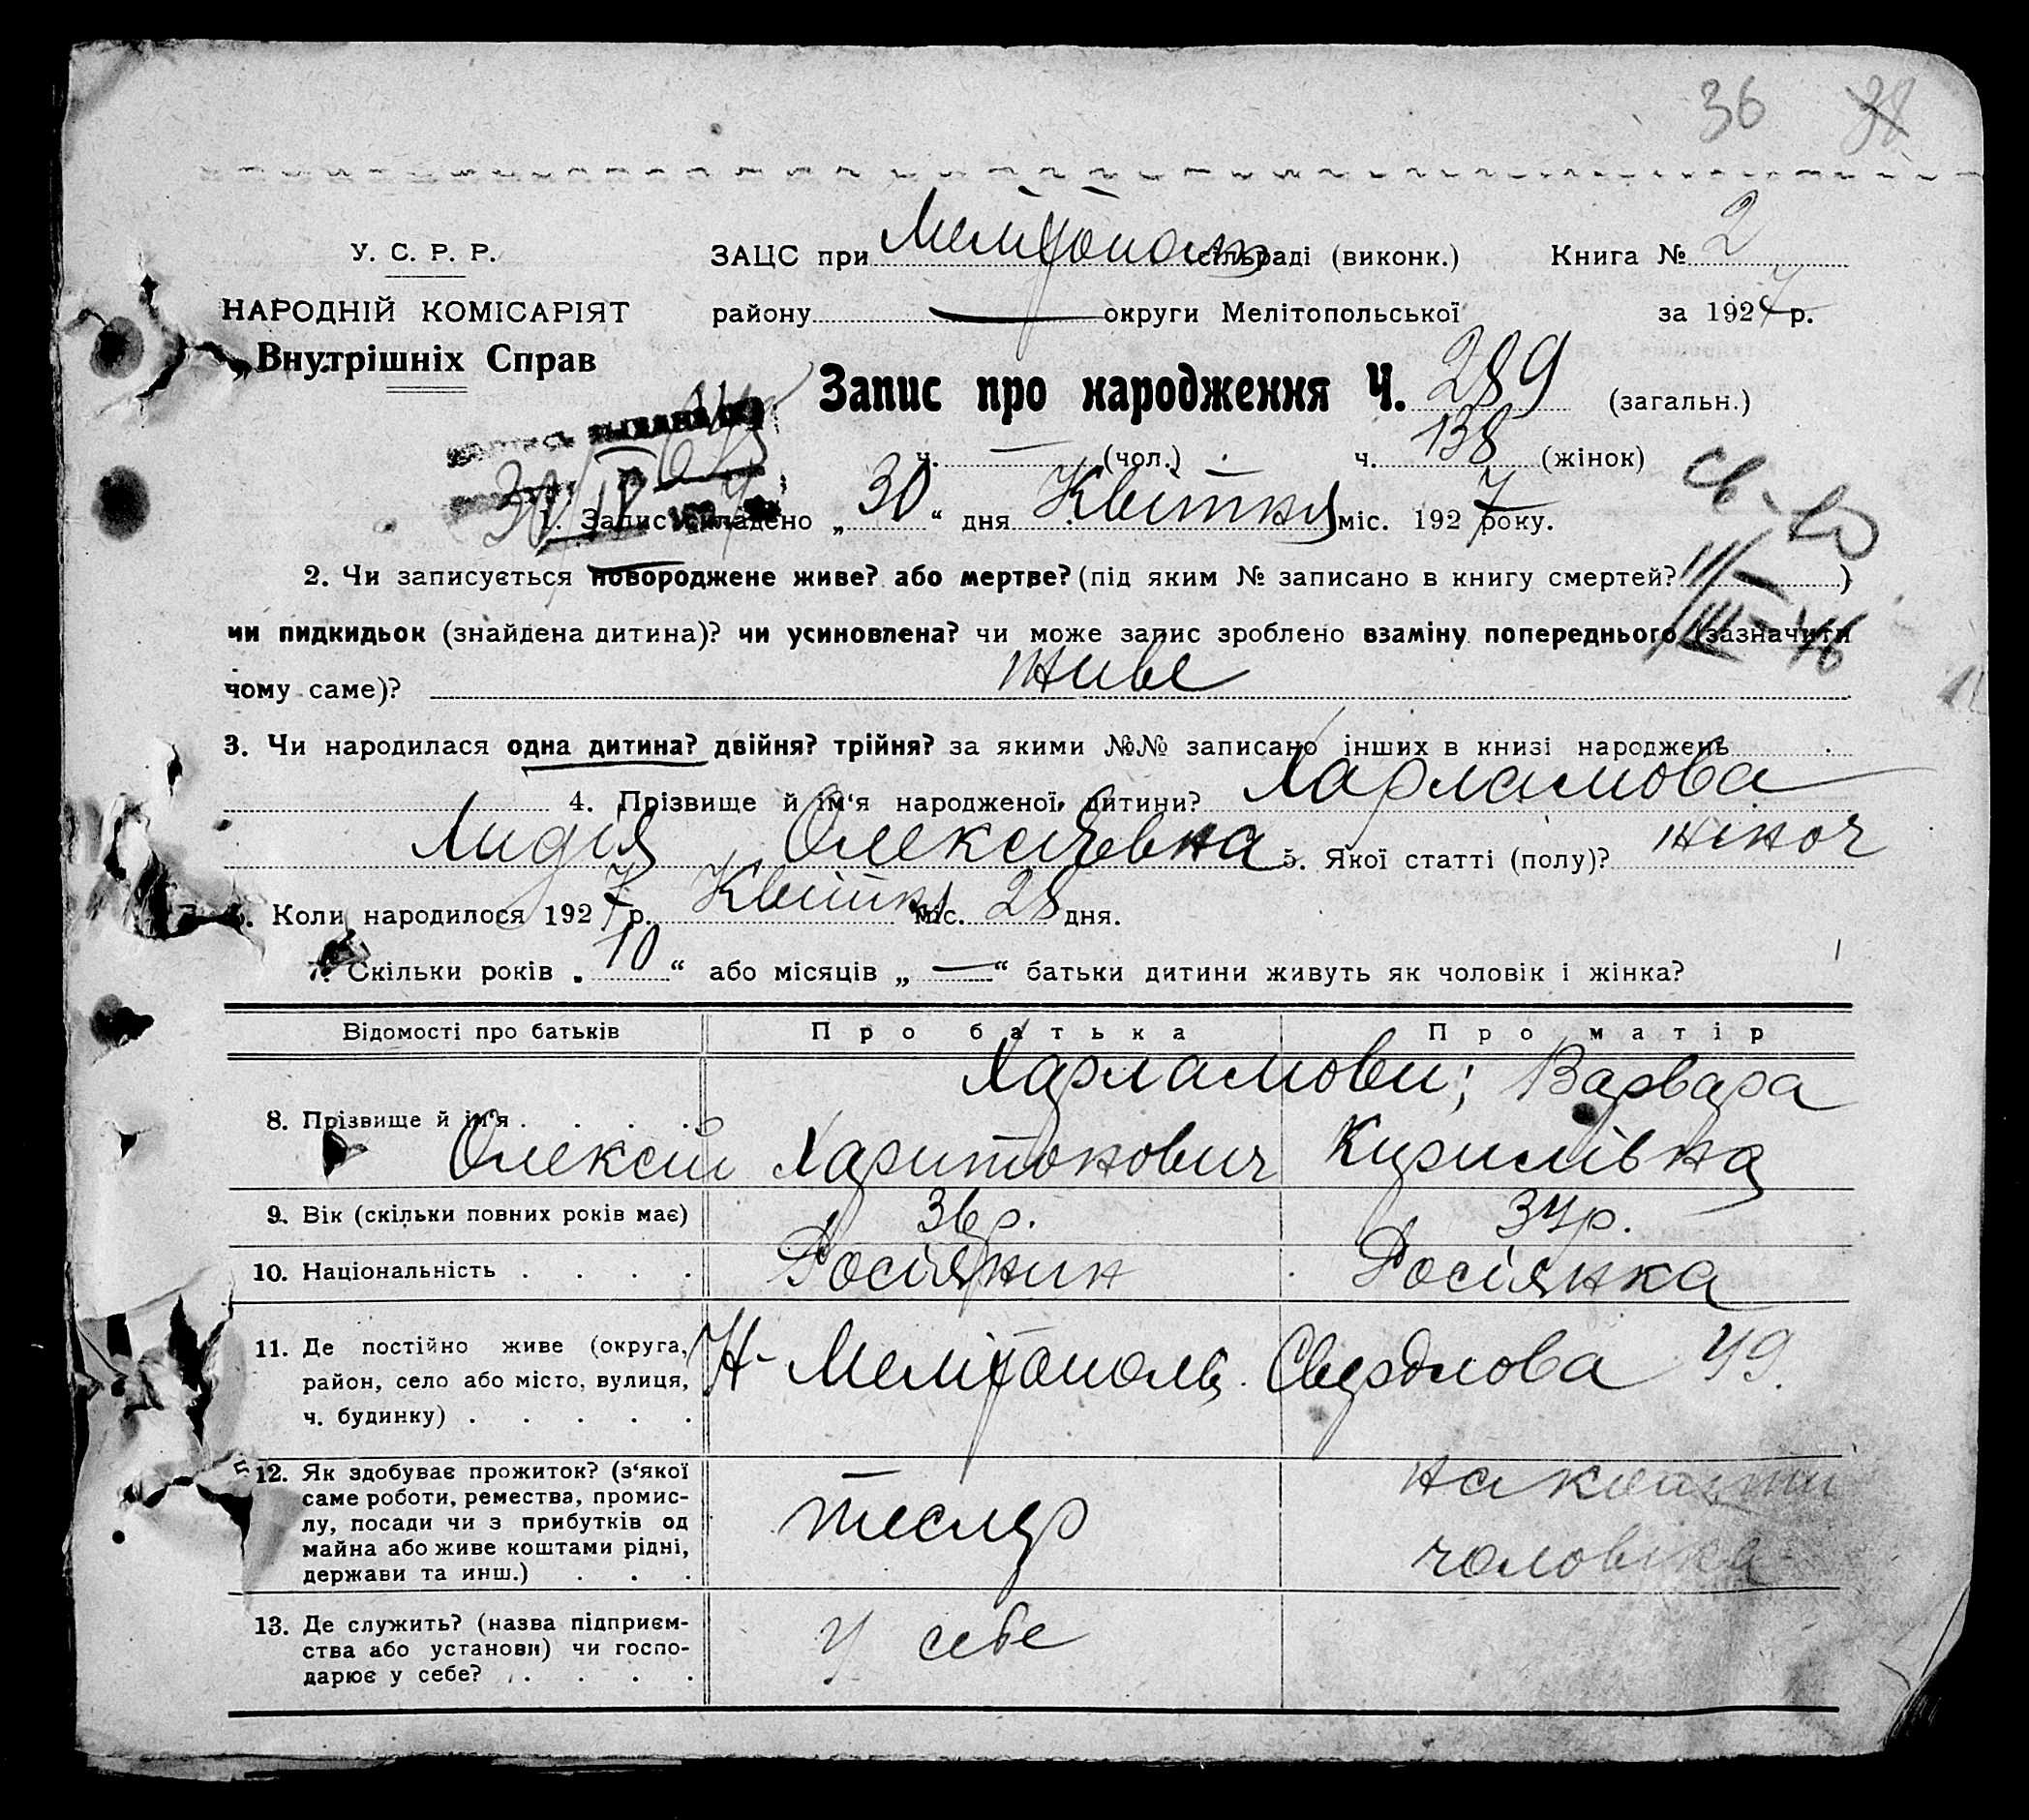 36 38
У. С. Р. Р. ЗАЦС при Мелітополь сільраді (виконк.) Книга № 2
НАРОДНІЙ КОМІСАРІЯТ району — округи Мелітопольської за 1927 р.
Внутрішніх Справ
Запис про народження Ч. 289 (загальн.)
ч. — (чол.) ч. 138 (жінок)
30/IV
1. Запис складено „30“ дня Квітня міс. 1927 року.
2. Чи записується новороджене живе? або мертве? (під яким № записано в книгу смертей? )
11/III-46
чи пидкидьок (знайдена дитина)? чи усиновлена? чи може запис зроблено взаміну попереднього (зазначити
чому саме)? живе
3. Чи народилася одна дитина? двійня? трійня? за якими №№ записано інших в книзі народжень
4. Прізвище й ім‘я народженої дитини? Харламова
Лидія Олексіївна 5. Якої статті (полу)? жіноч
6. Коли народилося 1927 р. Квітня міс. 28 дня.
7. Скільки років „10“ або місяців „—“ батьки дитини живуть як чоловік і жінка?
Відомості про батьків Про батька Про матір
Харламови; Варвара
8. Прізвище й ім‘я
Олексій Харитонович Кирилівна
9. Вік (скільки повних років має) 36 р. 34 р.
10. Національність Росіянин Росіянка
11. Де постійно живе (округа, район, село або місто, вулиця, ч. будинку) Н-Мелітополь Свердлова 49.
12. Як здобуває прожиток? (з‘якої
саме роботи, ремества, промис-
лу, посади чи з прибутків од
майна або живе коштами рідні,
держави та инш.) тесляр на кошти
чоловіка
13. Де служить? (назва підприєм-
ства або установи) чи госпо-
дарює у себе? У себе